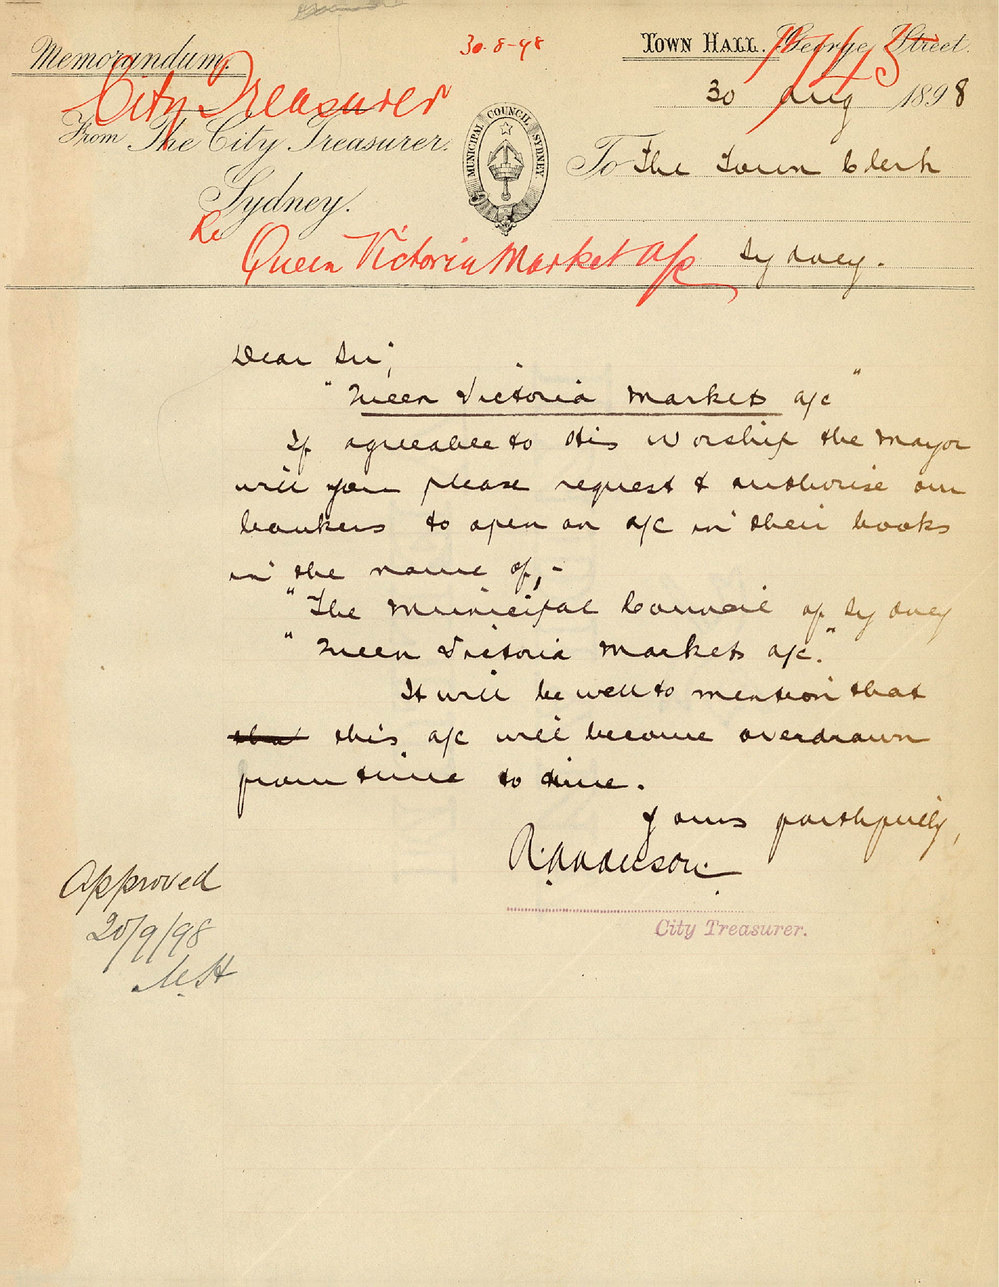 Memorandum.
30-8-98
TOWN HALL. George Street.
1743
City Treasurer
30 Aug 1898
From The City Treasurer.
MUNICIPAL COUNCIL SYDNEY
To The Town Clerk
Sydney.
Re Queen Victoria Market a/c
Sydney.
Dear Sir,
"Queen Victoria Markets a/c"
If agreeable to His Worship the Mayor
will you please request & authorise our
bankers to open an a/c in their books
in the name of, -
"The Municipal Council of Sydney
"Queen Victoria Markets a/c."
It will be well to mention that
that this a/c will become overdrawn
from time to time.
Yours faithfully,
R. Anderson.
City Treasurer.
Approved
20/9/98